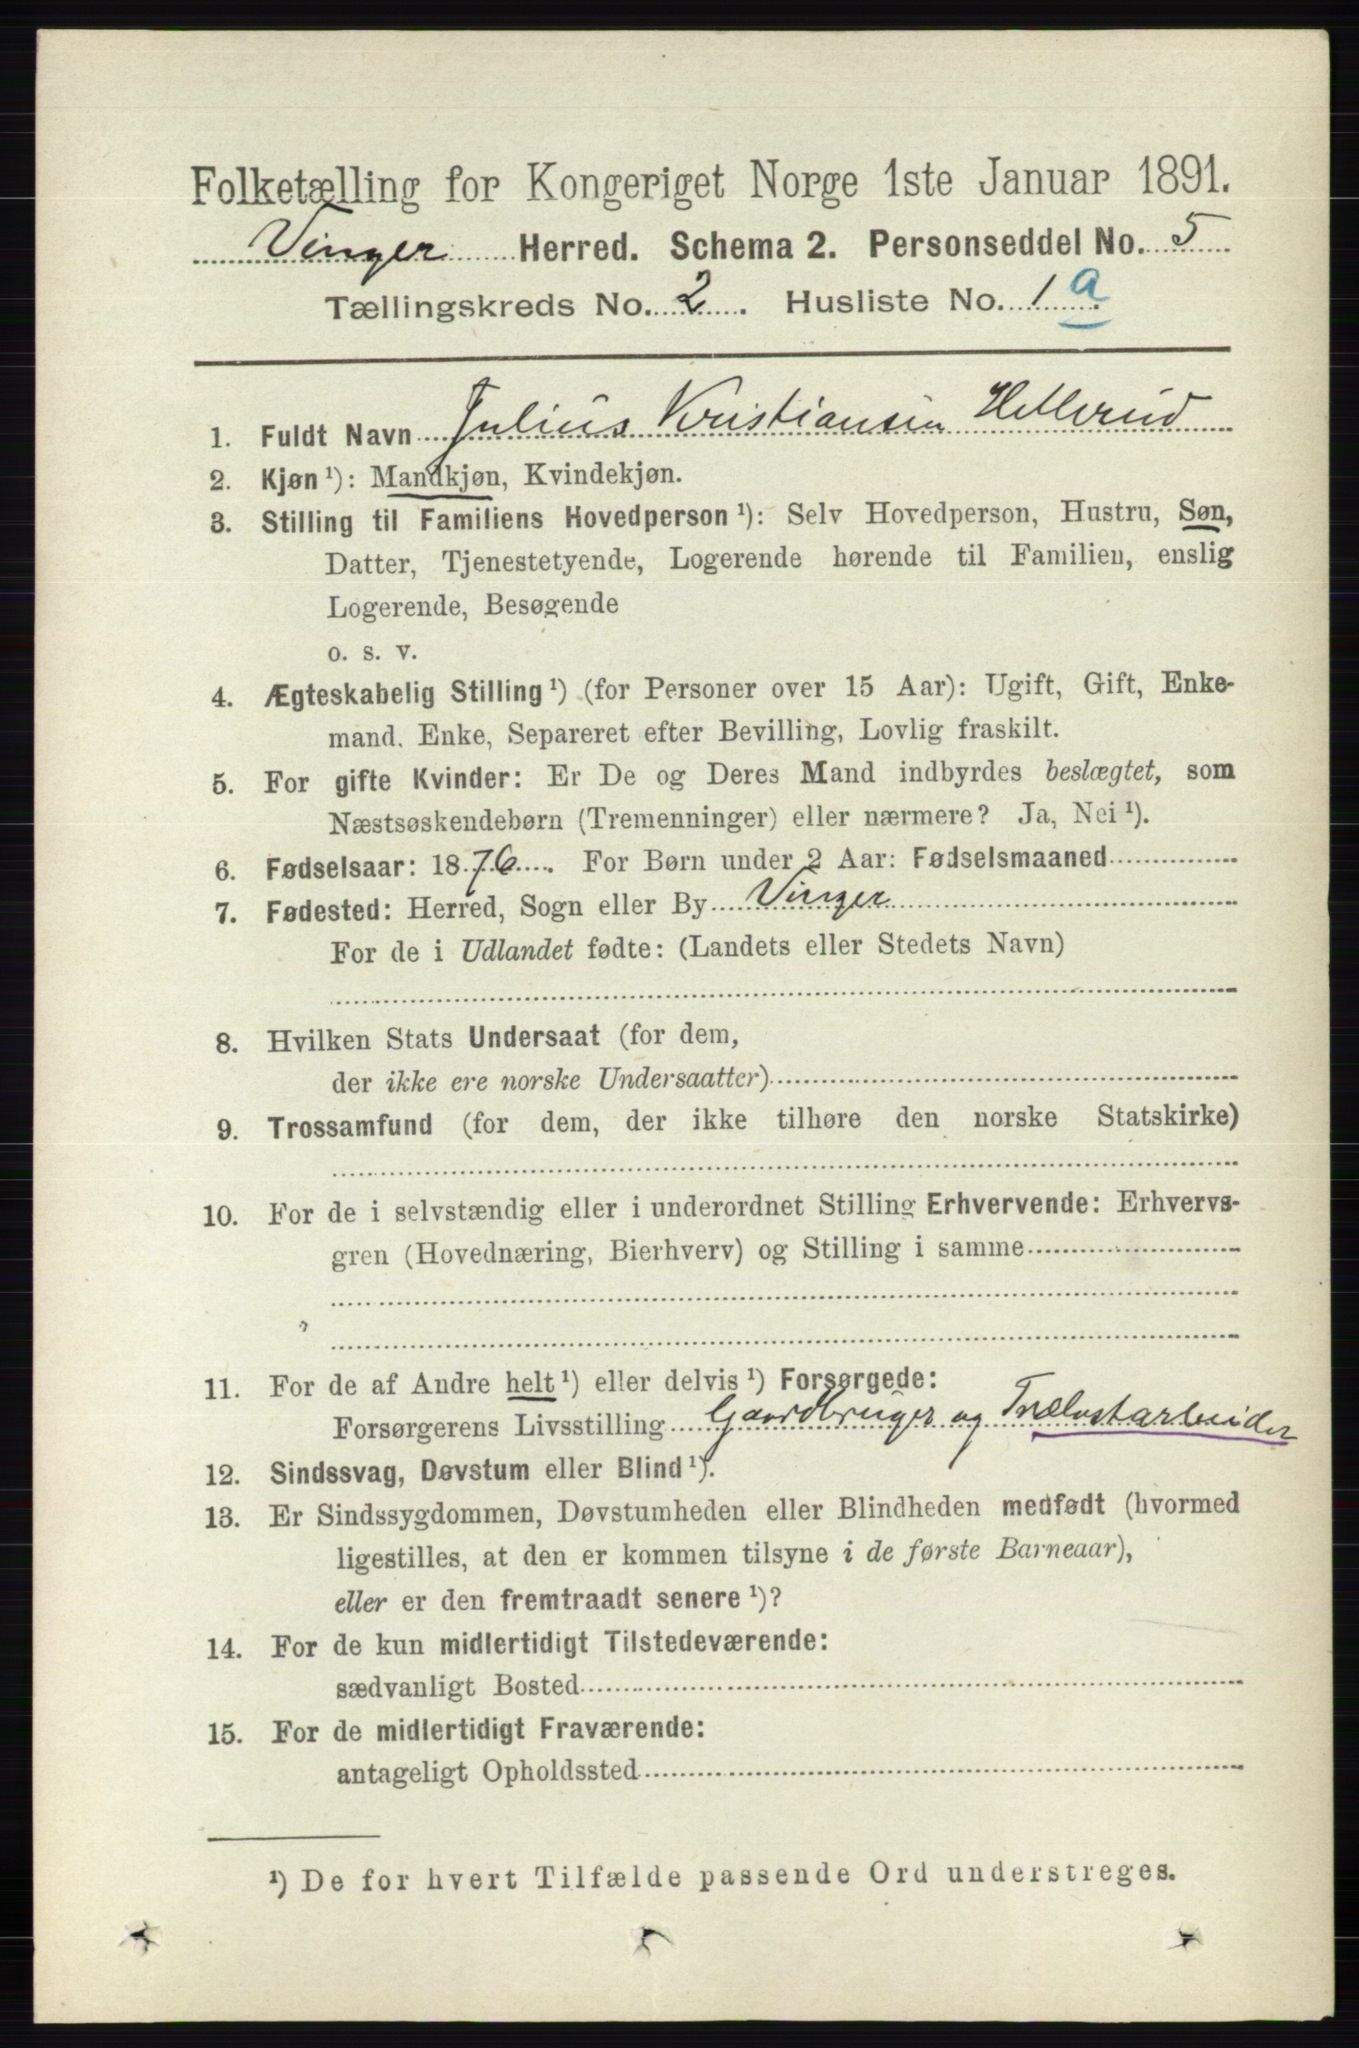 Folketælling for Kongeriget Norge 1ste Januar 1891.
Vinger Herred. Schema 2. Personseddel No. 5
Tællingskreds No. 2. Husliste No. 1 a
1. Fuldt Navn Julius Kristiansen Hellerud
2. Kjøn ¹): Mandkjøn, Kvindekjøn.
3. Stilling til Familiens Hovedperson ¹): Selv Hovedperson, Hustru, Søn,
Datter, Tjenestetyende, Logerende hørende til Familien, enslig
Logerende, Besøgende
o. s. v.
4. Ægteskabelig Stilling ¹) (for Personer over 15 Aar): Ugift, Gift, Enke-
mand, Enke, Separeret efter Bevilling, Lovlig fraskilt.
5. For gifte Kvinder: Er De og Deres Mand indbyrdes beslægtet, som
Næstsøskendebørn (Tremenninger) eller nærmere? Ja, Nei ¹).
6. Fødselsaar: 1876. For Børn under 2 Aar: Fødselsmaaned
7. Fødested: Herred, Sogn eller By Vinger
For de i Udlandet fødte: (Landets eller Stedets Navn)
8. Hvilken Stats Undersaat (for dem,
der ikke ere norske Undersaatter)
9. Trossamfund (for dem, der ikke tilhøre den norske Statskirke)
10. For de i selvstændig eller i underordnet Stilling Erhvervende: Erhvervs-
gren (Hovednæring, Bierhverv) og Stilling i samme
11. For de af Andre helt ¹) eller delvis ¹) Forsørgede:
Forsørgerens Livsstilling Gaardbruger og Trælastarbeider
12. Sindssvag, Døvstum eller Blind ¹).
13. Er Sindssygdommen, Døvstumheden eller Blindheden medfødt (hvormed
ligestilles, at den er kommen tilsyne i de første Barneaar),
eller er den fremtraadt senere ¹)?
14. For de kun midlertidigt Tilstedeværende:
sædvanligt Bosted
15. For de midlertidigt Fraværende:
antageligt Opholdssted
¹) De for hvert Tilfælde passende Ord understreges.